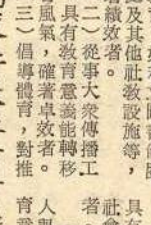 及其他社教設施等，
著績效者。
（二）從事大衆傳播工
具有教育意義能轉移
風氣，確著卓效者。
（三）倡導體育，對推
具有
社會
者。
人
育